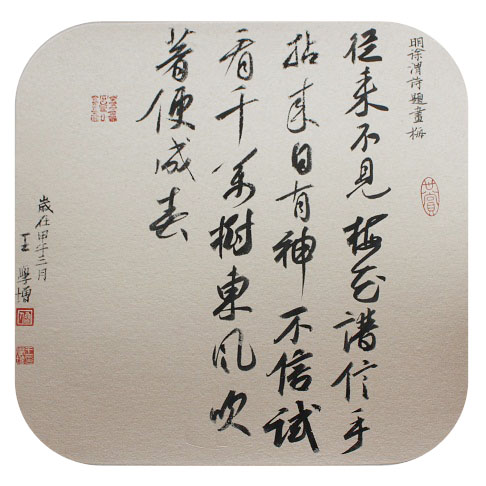 明徐渭詩題畫梅
從来不見梅花譜信手
拈来自有神不信試
看千萬樹東風吹
著便成春
歲在甲午三月
王學增